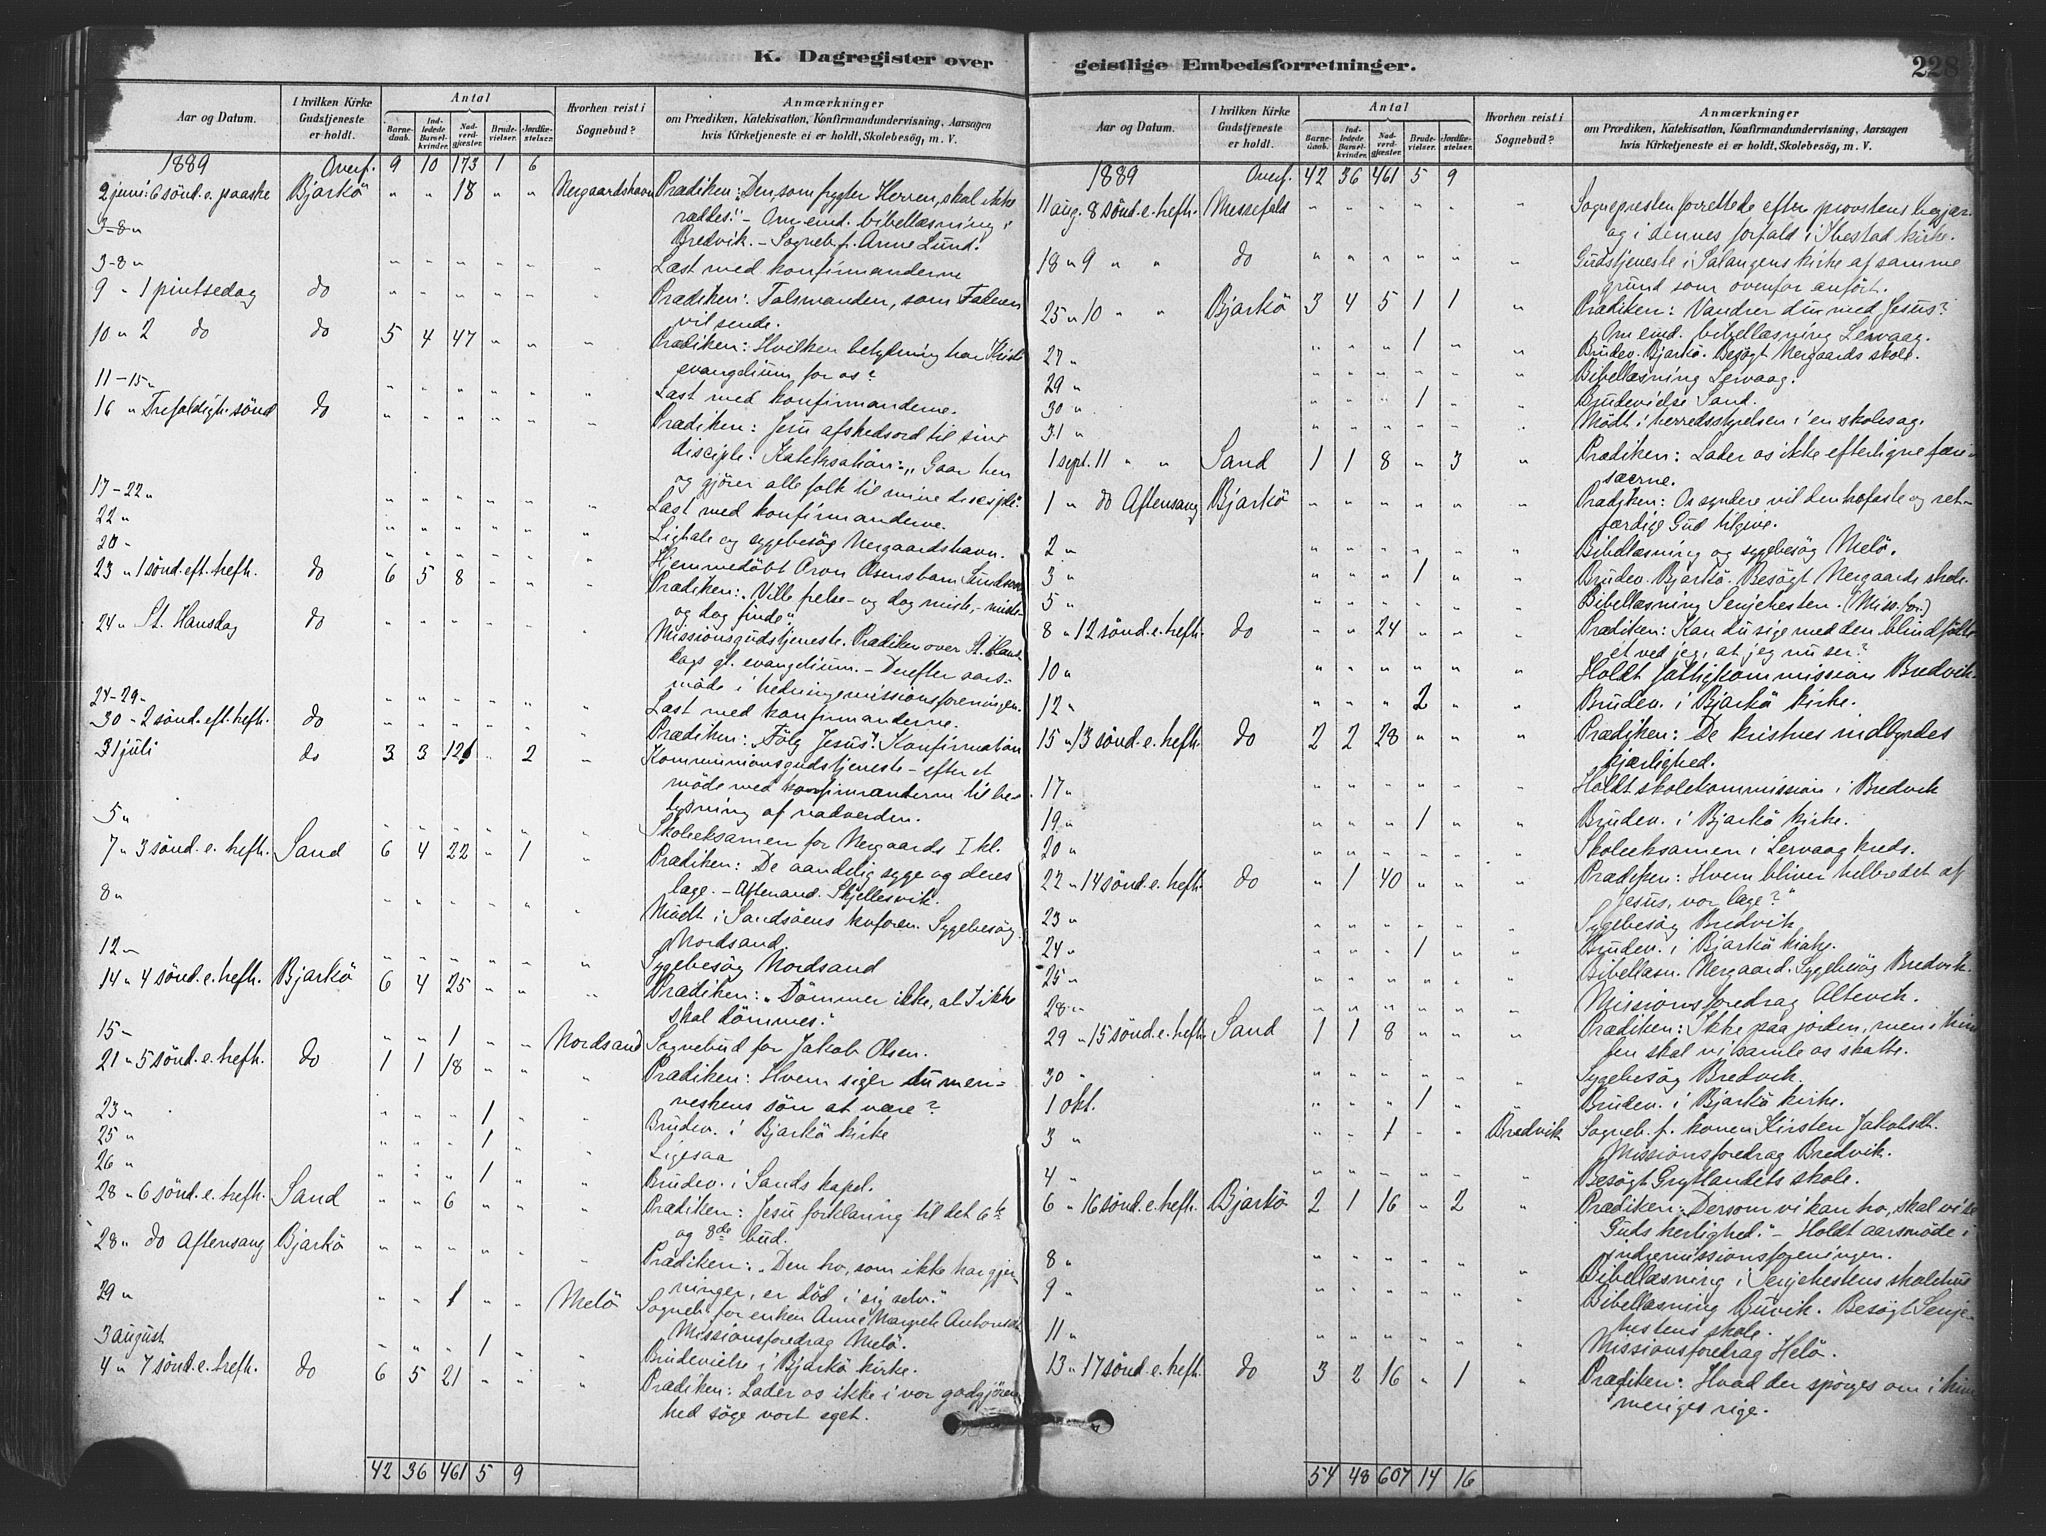 K. Dagregister over
Aar og Datum.
I hvilken Kirke Gudstjeneste er holdt.
Antal
Barnedaab.
Indledede Barselkvinder.
Nadverdgjæster.
Brudevielser.
Jordfæstelser.
Hvorhen reist i Sognebud?
Anmærkninger
om Prædiken, Katekisation, Konfirmandundervisning, Aarsagen
hvis Kirketjeneste ei er holdt, Skolebesøg, m. V.
1889 Overf. 9 10 173 1 6
2 juni 6 sönd. e. paaske Bjarkö " " 18 " " Nergaardshavn Prædiken: "Den, som frygter Herren, skal ikke
ræddes." – Om emd. bibellæsning i
Bredvik. – Sogneb. f. Anne Lund.
3-8 "
3-8 " Læst med konfirmanderne
9 " 1 pintsedag do Prædiken: Talsmanden, som Faderen
vil sende.
10 " 2 do do 5 4 47 " " Prædiken: Hvilken betydning har Kristi
evangelium for os?
11-15 " Læst med konfirmanderne.
16 " Trefoldigh. sönd do Prædiken: Jesu afskedsord til sine
disciple. Katekisation: "Gaar hen
og gjörer alle folk til mine disciple."
17-22 " Læst med konfirmanderne.
22 " Ligtale og sygebesög Nergaardshavn.
20 " Hjemmedöbt Aron Olsens barn
23 " 1 sönd. eft. trefh. do 6 5 8 " " Prædiken: "Ville frelse – og dog miste, – miste
og dog finde."
24 " St. Hansdag do Missionsgudstjeneste. Prædiken over St. Hans
dags gl. evangelium. – Derefter aars-
möde i hedningemissionsforeningen.
24-29 " Læst med konfirmanderne.
30 " 2 sönd. eft. trefh. do Prædiken: "Fölg Jesus." Konfirmation
31 juli do 3 3 126 " 2 Kommunionsgudstjeneste – efter et
möde med konfirmanderne til be-
lysning af nadverden.
5 " Skoleeksamen for Nergaards I kl.
7 " 3 sönd. e. trefh. Sand 6 4 22 " 1 Prædiken: De aandelig syge og deres
læge. – Aftenand. Skjellesvik.
8 " Mödt i Sandsöens kvforen. Sygebesög
Nordsand.
12 " Sygebesög Nordsand
14 " 4 sönd. e. trefh. Bjarkö 6 4 25 " " Prædiken: "Dömmer ikke, at I ikke
skal dömmes."
15 " " " 1 " " Nordsand Sognebud for Jakob Olsen.
21 " 5 sönd. e. trefh. do 1 1 18 " " Prædiken: Hvem siger du men-
neskens sön at være?
23 " " " " 1 " Brudev. i Bjarkö kirke
25 " " " " 1 " Ligesaa
26 " " " " 1 " Brudev. i Sands kapel.
28 " 6 sönd. e. trefh. Sand " " 6 " " Prædiken: Jesu forklaring til det 6te
og 8de bud.
28 " do Aftensang Bjarkö Prædiken: "Den tro, som ikke har gjer-
ninger, er död i sig selv."
29 " " " 1 " " Melö Sogneb. for enken Anne Margrete Antonsdt.
Missionsforedrag Melö.
3 august " " " 1 " Brudevielse i Bjarkö kirke.
4 " 7 sönd. e. trefh. do 6 5 21 " " Prædiken: Lader os ikke i vor godgjören-
hed söge vort eget.
42 36 461 5 9
geistlige Embedsforretninger.
228
Aar og Datum.
I hvilken Kirke Gudstjeneste er holdt.
Antal
Barnedaab.
Indledede Barselkvinder.
Nadverdgjæster.
Brudevielser.
Jordfæstelser.
Hvorhen reist i Sognebud?
Anmærkninger
om Prædiken, Katekisation, Konfirmandundervisning, Aarsagen
hvis Kirketjeneste ei er holdt, Skolebesög, m. V.
1889 Overf. 42 36 461 5 9
11 aug. 8 sönd. e. trefh. Messefald Sognepresten forrettede efter provstens begjær-
og i dennes forfald i Ibestad kirke.
18 " 9 " " do Gudstjeneste i Salangens kirke af samme
grund som ovenfor anfört.
25 " 10 " " Bjarkö 3 4 5 1 1 Prædiken: Vandrer du med Jesus?
Om emd. bibellæsning Lervaag.
27 " " " " 1 " Brudev. Bjarkö. Besögt Nergaards skole.
29 " Bibellæsning Lervaag.
30 " " " " 1 " Brudevielse Sand.
31 " Mödt i herredsstyrelsen i en skolesag.
1 sept. 11 " " Sand 1 1 8 " 3 Prædiken: Lader os ikke efterligne fari-
sæerne.
1 " do Aftensang Bjarkö Prædiken: Os syndere vil den trofaste og ret-
færdige Gud tilgive.
2 " Bibellæsning og sygebesög Melö.
3 " " " " 1 " Brudev. Bjarkö. Besögt Nergaards skole.
5 " Bibellæsning Senjehesten. (Miss. for.)
8 " 12 sönd. e. trefh. do " " 24 " " Prædiken: Kan du sige med den blindfödte:
et ved jeg, at jeg nu ser?
10 " Holdt fattigkommission Bredvik.
12 " " " " 2 " Brudev. i Bjarkö kirke.
15 " 13 sönd. e. trefh. do 2 2 28 " " Prædiken: De kristnes indbyrdes
kjærlighed.
17 " Holdt skolekommission i Bredvik
19 " " " " 1 " Brudev. i Bjarkö kirke.
20 " Skoleeksamen i Lervaag kreds.
22 " 14 sönd. e. trefh. do " 1 40 " " Prædiken: Hvem bliver helbredet af
Jesus, vor læge?
23 " Sygebesög Bredvik
24 " " " " 1 " Brudev. i Bjarkö kirke.
25 " Bibellæsn. Nergaard. Sygebesög Bredvik.
28 " Missionsforedrag Altevik.
29 " 15 sönd. e. trefh. Sand 1 1 8 " " Prædiken: Ikke paa jorden, men i him-
len skal vi samle os skatte.
30 " Sygebesög Bredvik.
1 okt. " " " 1 " Brudev. i Bjarkö kirke.
3 " " " 1 " " Bredvik Sogneb. f. konen Kirsten Jakobsdt.
Missionsforedrag Bredvik.
4 " Besögt Grytlandets skole.
6 " 16 sönd. e. trefh. Bjarkö 2 1 16 " 2 Prædiken: "Dersom vi kan tro, skal vi se
Guds herlighed." – Holdt aarsmöde i
indremissionsforeningen.
8 " Bibellæsning i Senjehestens skolehus
9 " Bibellæsning Buvik. Besögt Senje-
hestens skole.
11 " Missionsforedrag Helö.
13 " 17 sönd. e. trefh. do 3 2 16 " 1 Prædiken: Hvad der spörges om i him-
meriges rige.
54 48 607 14 16